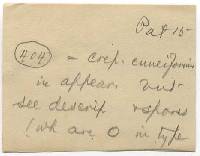 Pat 15
404 = crep. cuneiformis
in appear. but
see descrip. & spores
(wh are O in type